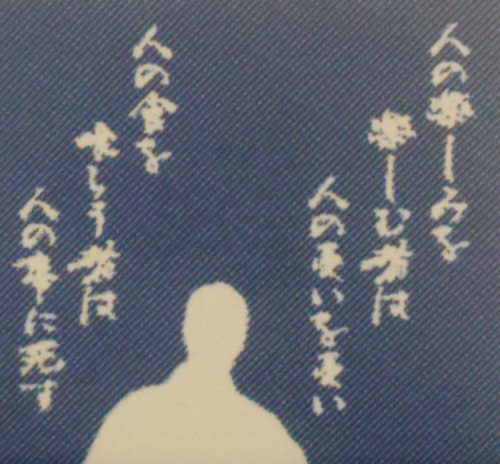 人の楽しみを
楽しむ者は
人の憂いを憂い
人の食を
喰らう者は
人の事に死す